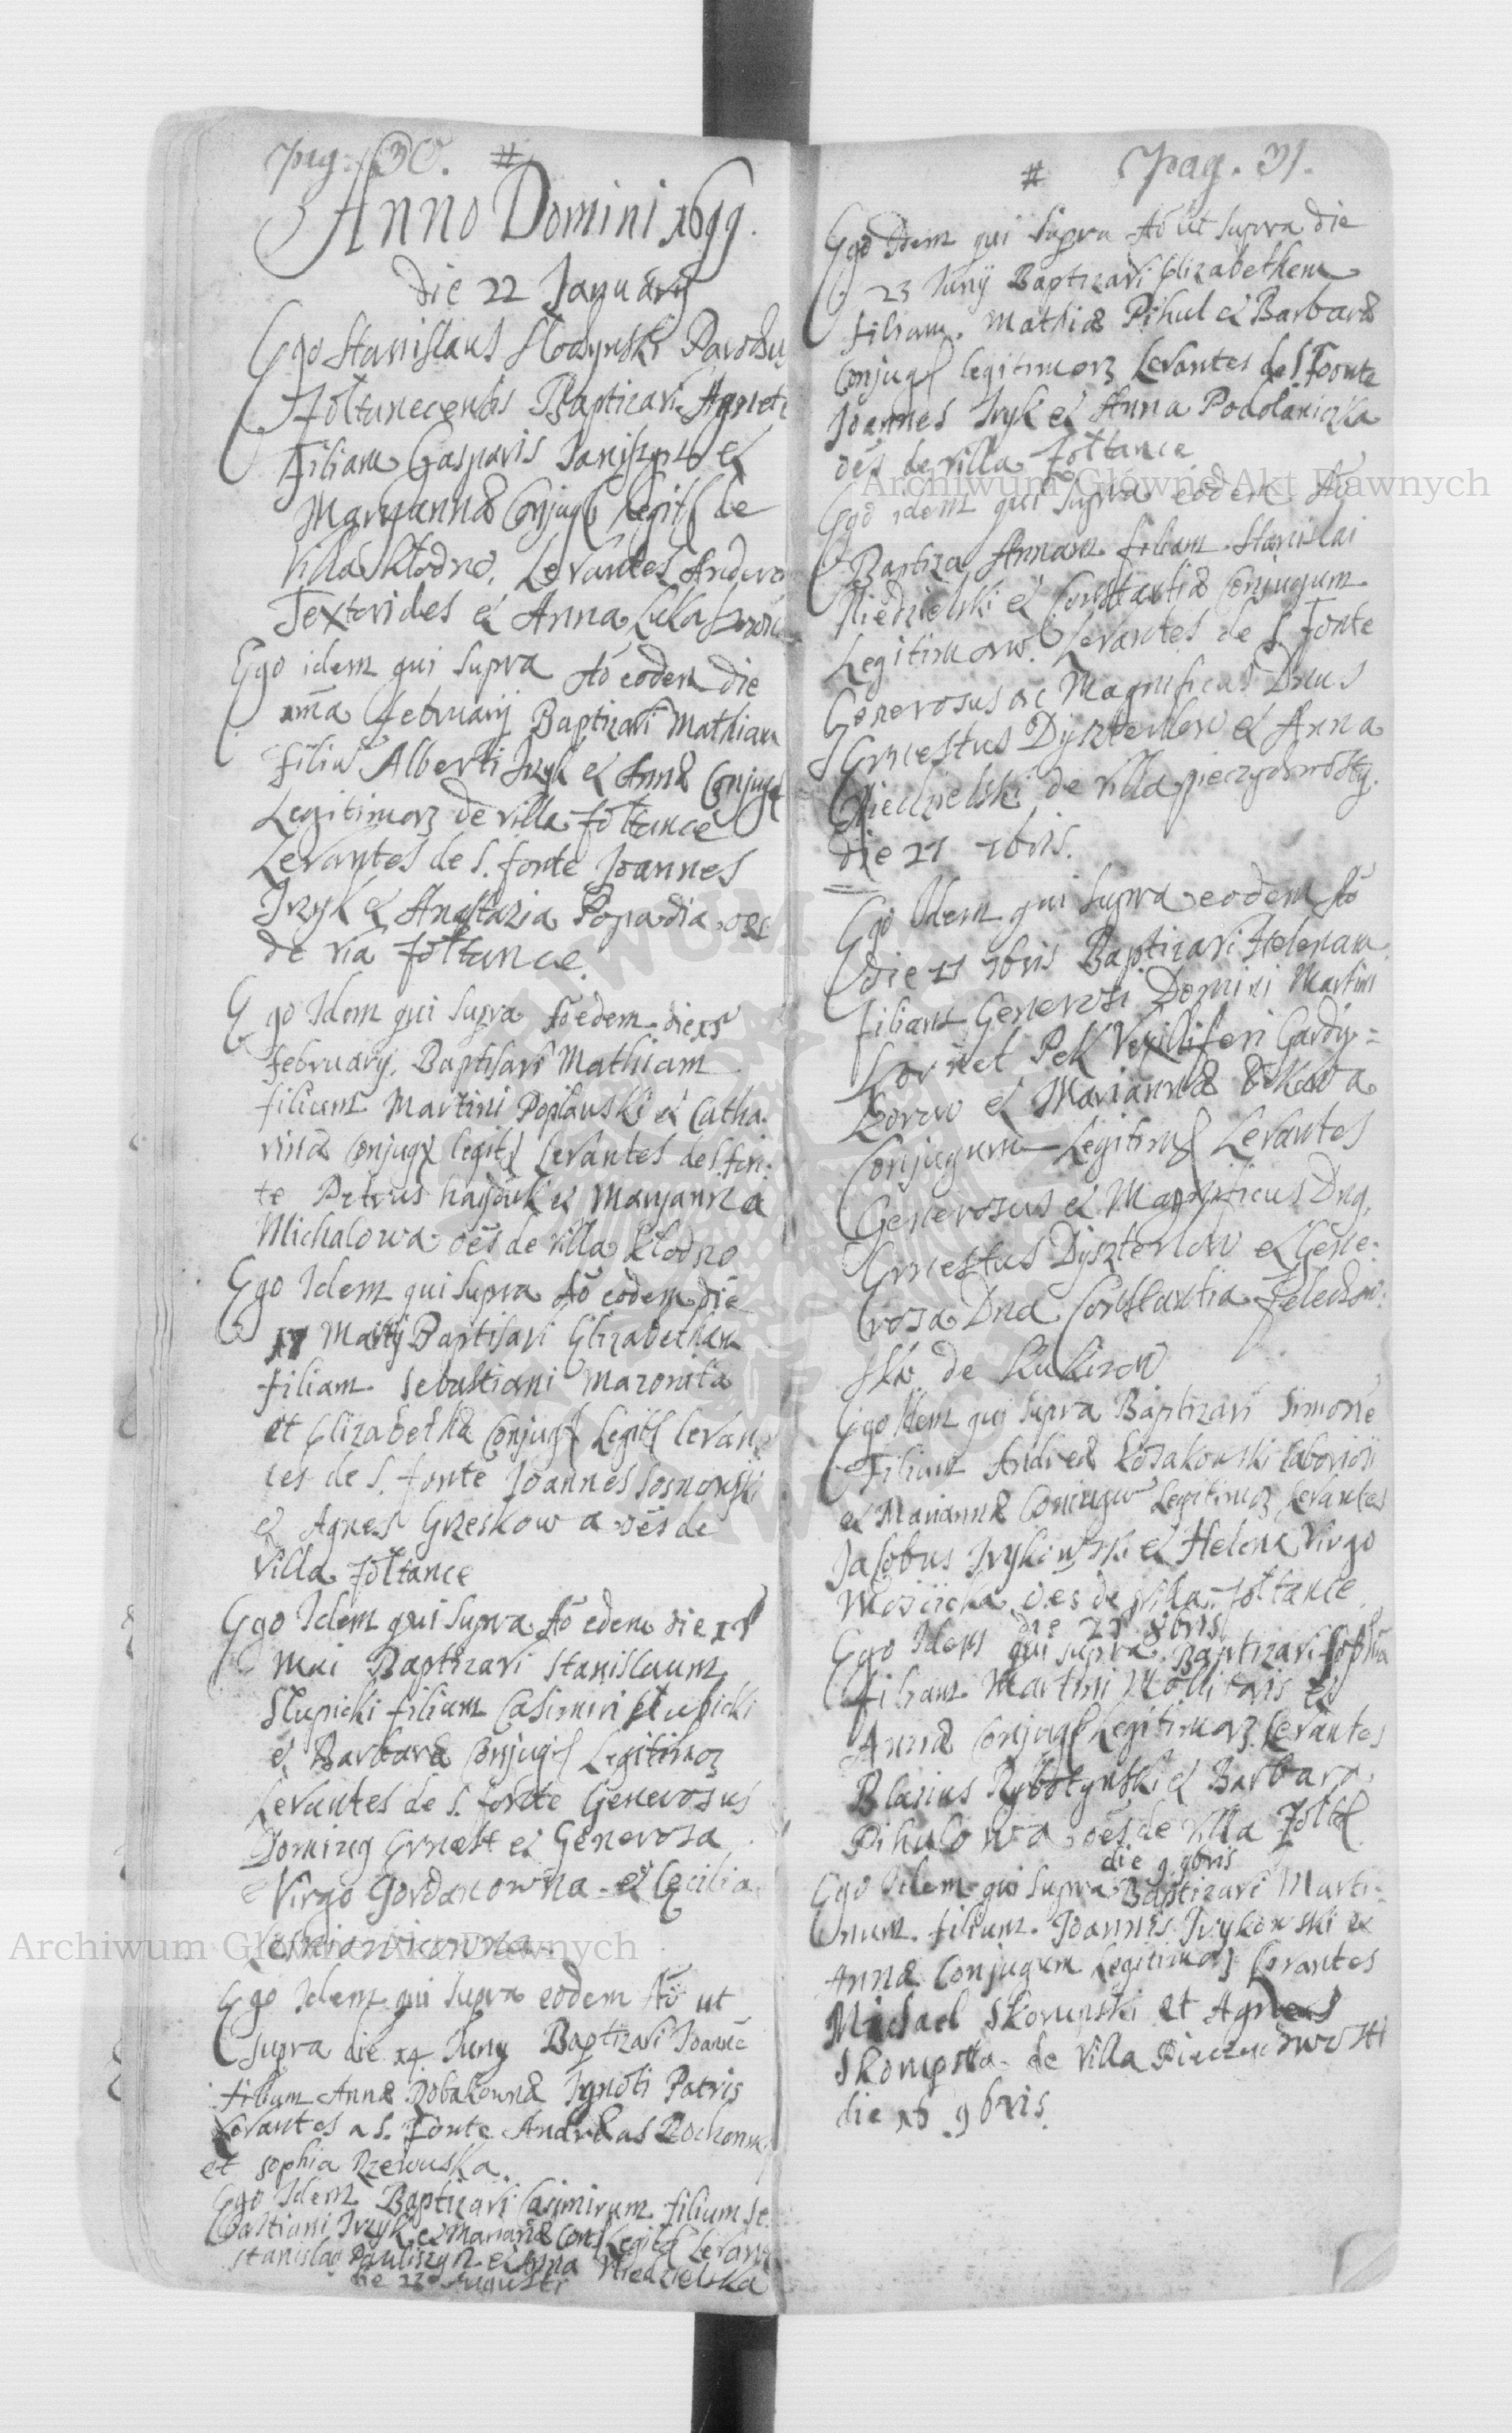 pag: 30. #
Anno Domini 1699.
die 22 January
Ego Stanislaus Parochus
Baptizavi
Filiam Gasparis et
Maryannæ Conjug Legit de
Villa Kłodno. Levantes
Textorides et Anna
Ego idem qui supra Aō eodem die
1ma february Baptizavi Mathiam
filiū Alberti Irzyk et Annæ Conjug
Legitimor de villa Zołtance
Levantes de S. fonte Joannes
Irzyk et Anastazia Popadia oēs
de via Zołtance.
Ego Idem qui supra Aō edem die 15
february. Baptisavi Mathiam
filium Martini Poplauski et Catha.
rinæ Conjug legit Levantes de S. fon.
te Petrus et Maryanna
Michalowa oēs de villa Kłodno
Ego Idem qui supra Aō eodem die
17 Martij Baptisavi Elizabetham
filiam Sebastiani Mazonita
et Elizabethæ Conjug Legit Levan
tes de S. fonte Joannes Sosnowski
et Agnes Grzeskowa oēs de
villa Zołtance
Ego Idem qui supra Aō edem die 15
Mai Baptizavi Stanislaum
Slupicki filium Casimiri Slupicki
et Barbaræ Conjug Legitimor
Levantes de S. fonte Generosus
Dominus Ernest et Generosa
Virgo Gordanowna et Cecilia

Ego Idem qui supra eodem Aō ut
supra die 14 Juny Baptizavi Joanē
filium Annæ Dobakownæ Ignoti Patris
Levantes a S. Fonte Andreas
et Sophia Rzewuska.
Ego Idem Baptizavi Casimirum filium Se
bastiani Irzyk et Marianæ Conj Legit Levant
Stanislaus Pauliszyn et Anna Niedzielska
die 23 Augusti
# Pag. 31.
Ego Idem qui supra Aō ut supra die
23 Junij Baptizavi Elizabethem
filiam Mathiæ Pihul et Barbaræ
Conjug legitimor Levantes de S. Fonte
Joannes Iryk et Anna Podolaniczka
oēs de villa Zołtance
Ego idem qui supra eodem Aō
Baptiza Annam filiam Stanislai
Niedzielski et Constantiæ Conjugum
Legitimorū. Levantes de S. Fonte
Generosus ac Magnificus Dnus
Ernestus Dyszterlow et Anna
Niedzielski de villa Pieczychwosty.
die 21 7bris.
Ego Idem qui supra eodem Aō
die 11 7bris Baptizavi Helenam
filiam Generosi Domini Martini
Kornet Pek Vexilliferi Gardy=
zorow et Mariannæ
Conjugum Legitim Levantes
Generosus et Magnificus Dnq,
Ernestus Dyszterlow et Gene:
rosa Dna Constantia
ska de Kukizow
Ego Idem qui supra Baptizavi Simonē
Filium Andreæ Kosakowski laboriosi
et Mariannæ Coniugū Legitimor Levantes
Jacobus Irykowski et Helena Virgo
oēs de villa Zołtance.
die 25 8bris
Ego Idem qui supra Baptizavi Sophia
filiam Martini Mollitoris et
Annæ Conjug Legitimor Levantes
Blasius et Barbara
Pihulowa oēs de villa Zołt
die 9 9bris
Ego Idem qui supra Baptizavi Marti=
num filium Joannis Irykowski et
Annæ Conjugum Legitimor Levantes
Michael Skorupski et Agnes
Skorupska de Villa Pieczychwosti
die 16 9bris.
Archiwum Główne Akt Dawnych
Archiwum Główne Akt Dawnych